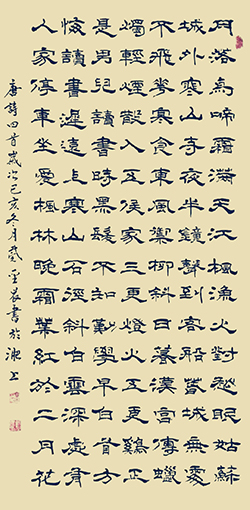 月落烏啼霜滿天江楓漁火對愁眠姑蘇
城外寒山寺夜半鐘聲到客船春城無處
不飛花寒食東風御柳斜日暮漢宮傳蠟
燭輕煙散入五侯家三更燈火五更鷄正
是男兒讀書時黑髮不知勤學早白首方
悔讀書遲遠上寒山石徑斜白雲深處有
人家停車坐愛楓林晚霜葉紅於二月花
唐詩四首歲次己亥冬月書於上